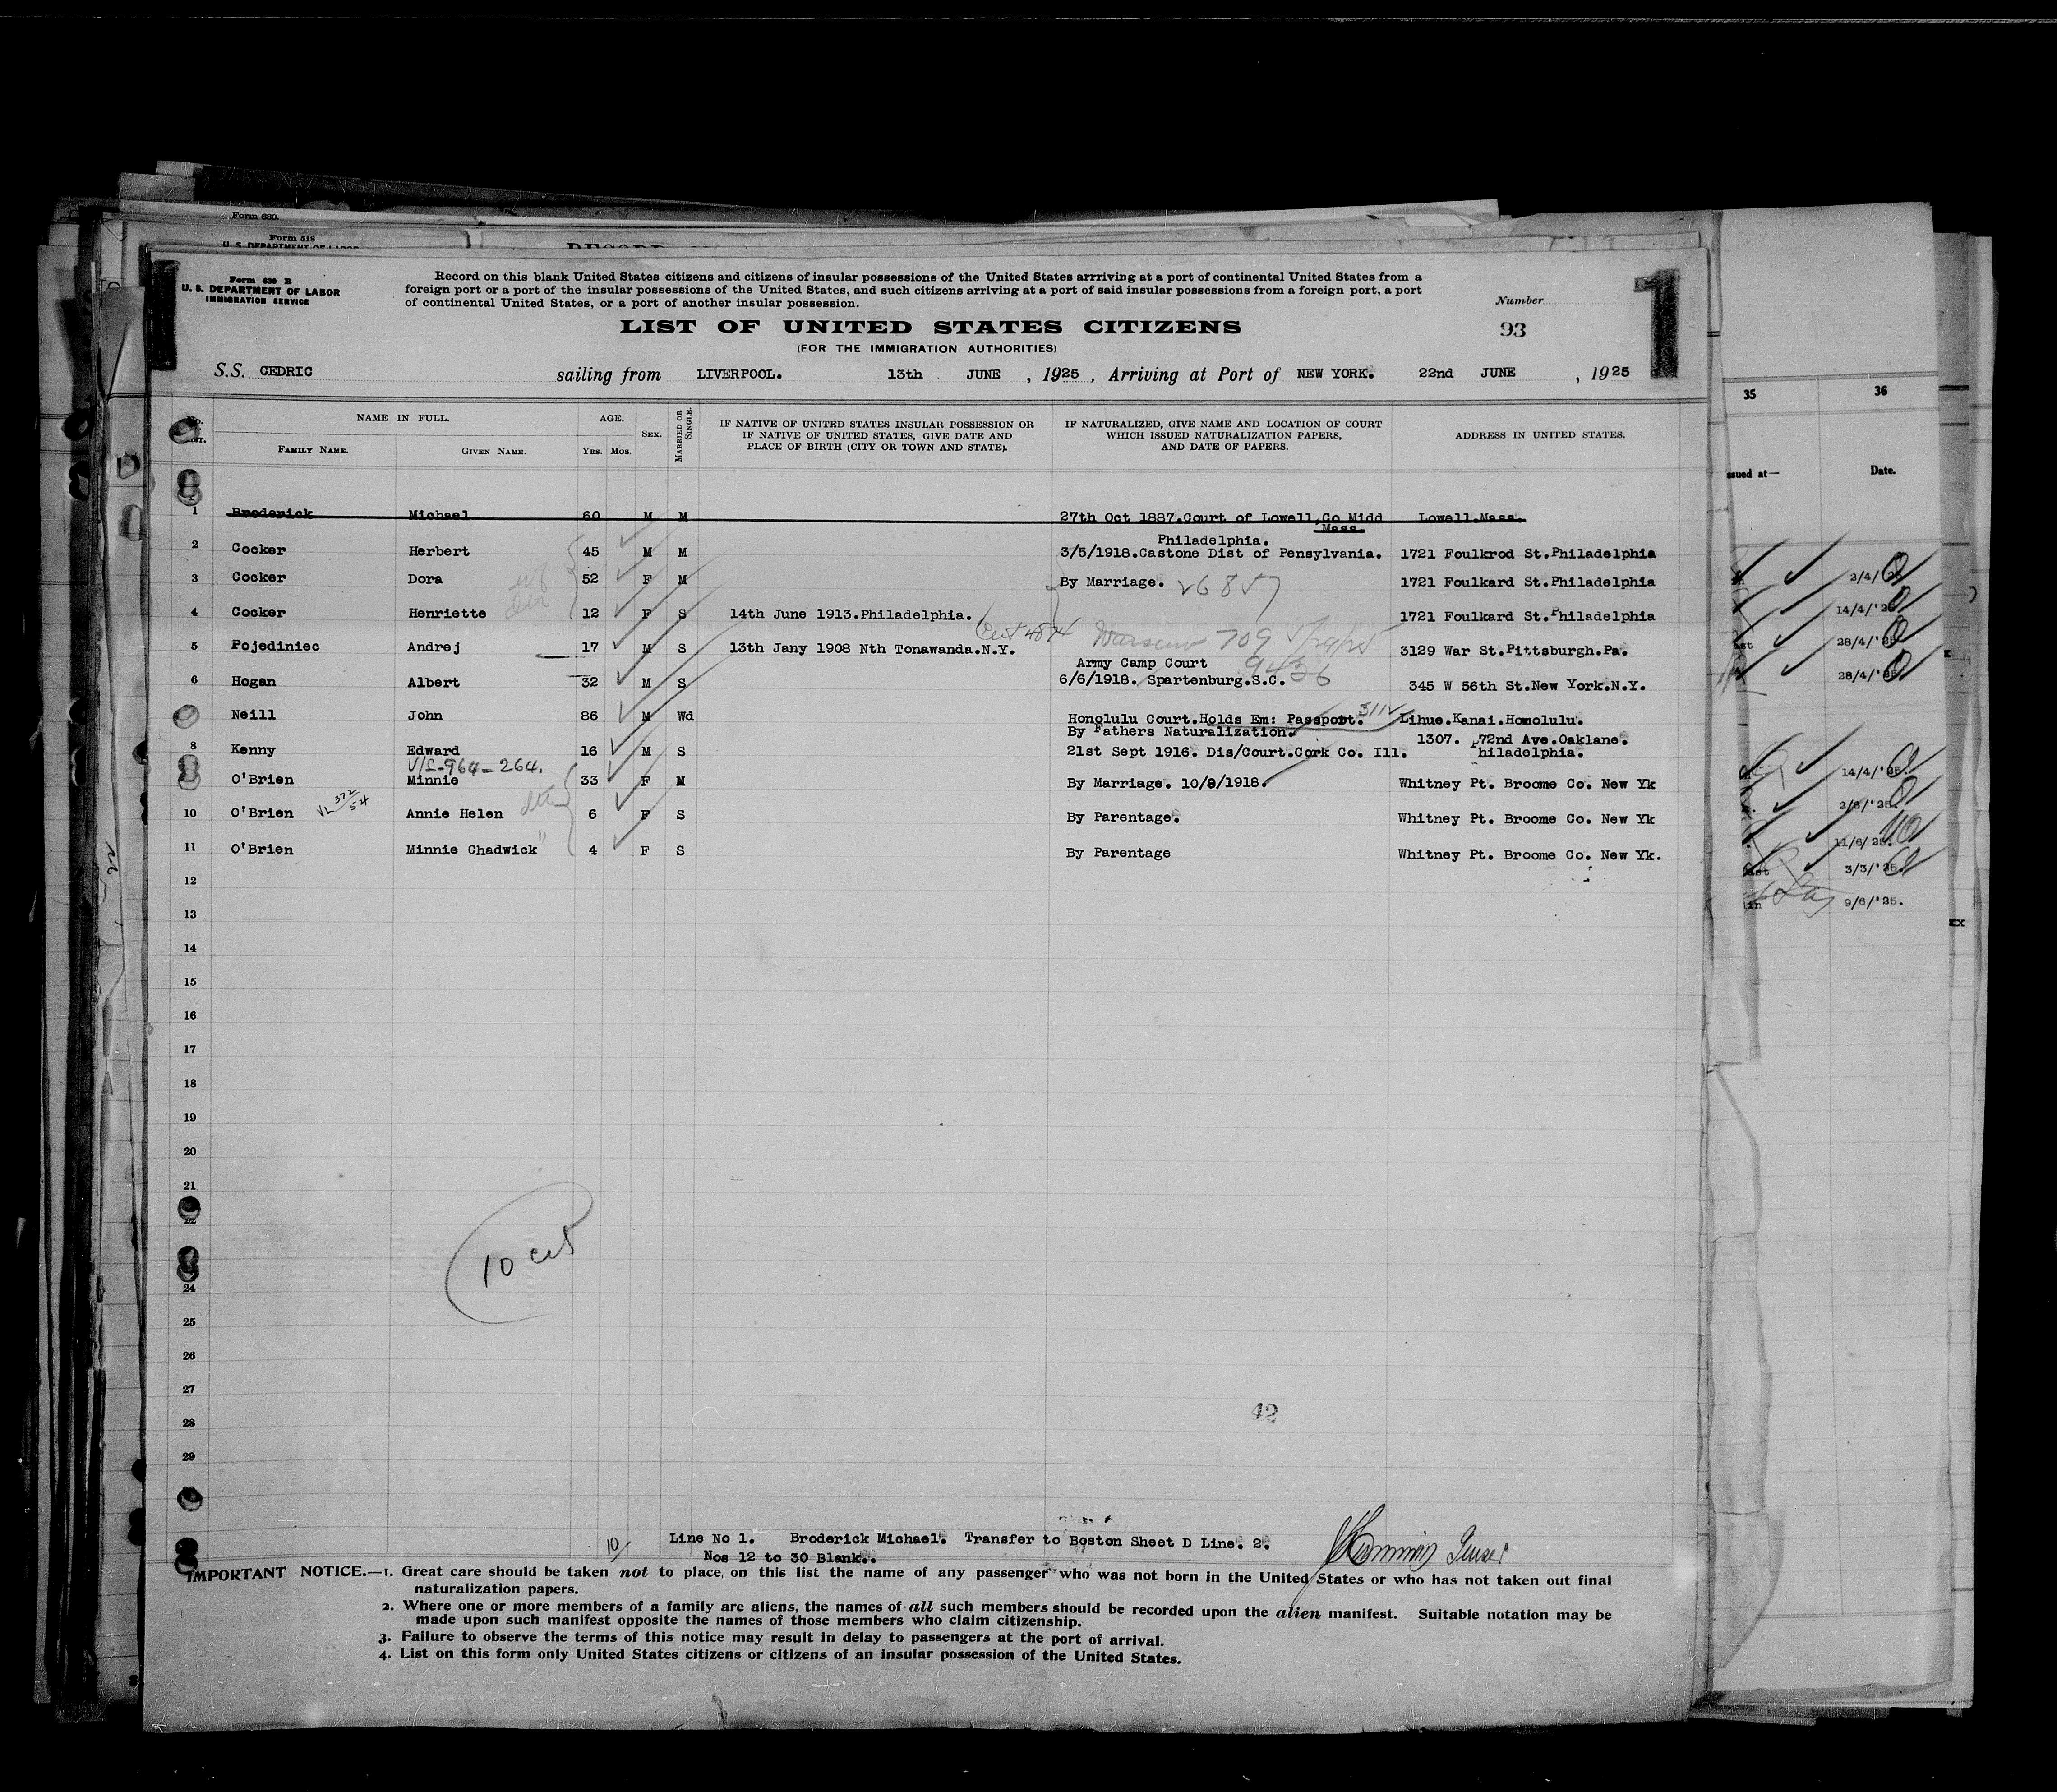 Form 680.
Form 518
U. S. DEPARTMENT OF LABOR
Form 630 B
U. S. DEPARTMENT OF LABOR
IMMIGRATION SERVICE
Record on this blank United States citizens and citizens of insular possessions of the United States arrriving at a port of continental United States from a
foreign port or a port of the insular possessions of the United States, and such citizens arriving at a port of said insular possessions from a foreign port, a port
of continental United States, or a port of another insular possession.
Number
93
1
LIST OF UNITED STATES CITIZENS
(FOR THE IMMIGRATION AUTHORITIES)
S.S. CEDRIC sailing from LIVERPOOL. 13th JUNE , 1925 , Arriving at Port of NEW YORK. 22nd JUNE , 1925
NAME IN FULL. AGE. SEX. MARRIED OR SINGLE. IF NATIVE OF UNITED STATES INSULAR POSSESSION OR IF NATIVE OF UNITED STATES, GIVE DATE AND PLACE OF BIRTH (CITY OR TOWN AND STATE). IF NATURALIZED, GIVE NAME AND LOCATION OF COURT WHICH ISSUED NATURALIZATION PAPERS, AND DATE OF PAPERS. ADDRESS IN UNITED STATES.
FAMILY NAME. GIVEN NAME. YRS. MOS.
35 36
ssued at— Date.
1 Broderick Michael 60 M M 27th Oct 1887.Court of Lowell,Co Midd Lowell.Mass.
Mass.
Philadelphia.
2 Cocker Herbert 45 M M 3/5/1918.Castone Dist of Pensylvania. 1721 Foulkrod St.Philadelphia
3 Cocker Dora 52 F M By Marriage. 26857 1721 Foulkard St.Philadelphia
4 Cocker Henriette 12 F S 14th June 1913.Philadelphia. 1721 Foulkard St.Philadelphia
Cert 4874 Warsaw 709
5 Pojediniec Andrej 17 M S 13th Jany 1908 Nth Tonawanda.N.Y. 3129 War St.Pittsburgh.Pa.
Army Camp Court 9426
6 Hogan Albert 32 M S 6/6/1918. Spartenburg.S.C. 345 W 56th St.New York.N.Y.
Neill John 86 M Wd Honolulu Court.Holds Em: Passport. Lihue.Kanai.Homolulu.
By Fathers Naturalization. 1307. 72nd Ave.Oaklane.
8 Kenny Edward 16 M S 21st Sept 1916. Dis/Court.Cork Co. Ill. Philadelphia.
V/L-964-264.
O'Brien Minnie 33 F M By Marriage. 10/8/1918. Whitney Pt. Broome Co. New Yk
10 O'Brien VL 372/54 Annie Helen 6 F S By Parentage. Whitney Pt. Broome Co. New Yk
11 O'Brien Minnie Chadwick " 4 F S By Parentage Whitney Pt. Broome Co. New Yk.
12
13
14
15
16
17
18
19
20
21
22
24
25
26
27
28
29
2/4/'25
14/4/'25
28/4/'25
28/4/'25
14/4/'25.
2/6/'25.
11/6/'25.
3/3/'25.
9/6/'25.
10
42
10/ Line No 1. Broderick Michael. Transfer to Boston Sheet D Line. 2.
Nos 12 to 30 Blank.
IMPORTANT NOTICE.—1. Great care should be taken not to place on this list the name of any passenger who was not born in the United States or who has not taken out final
naturalization papers.
2. Where one or more members of a family are aliens, the names of all such members should be recorded upon the alien manifest. Suitable notation may be
made upon such manifest opposite the names of those members who claim citizenship.
3. Failure to observe the terms of this notice may result in delay to passengers at the port of arrival.
4. List on this form only United States citizens or citizens of an insular possession of the United States.